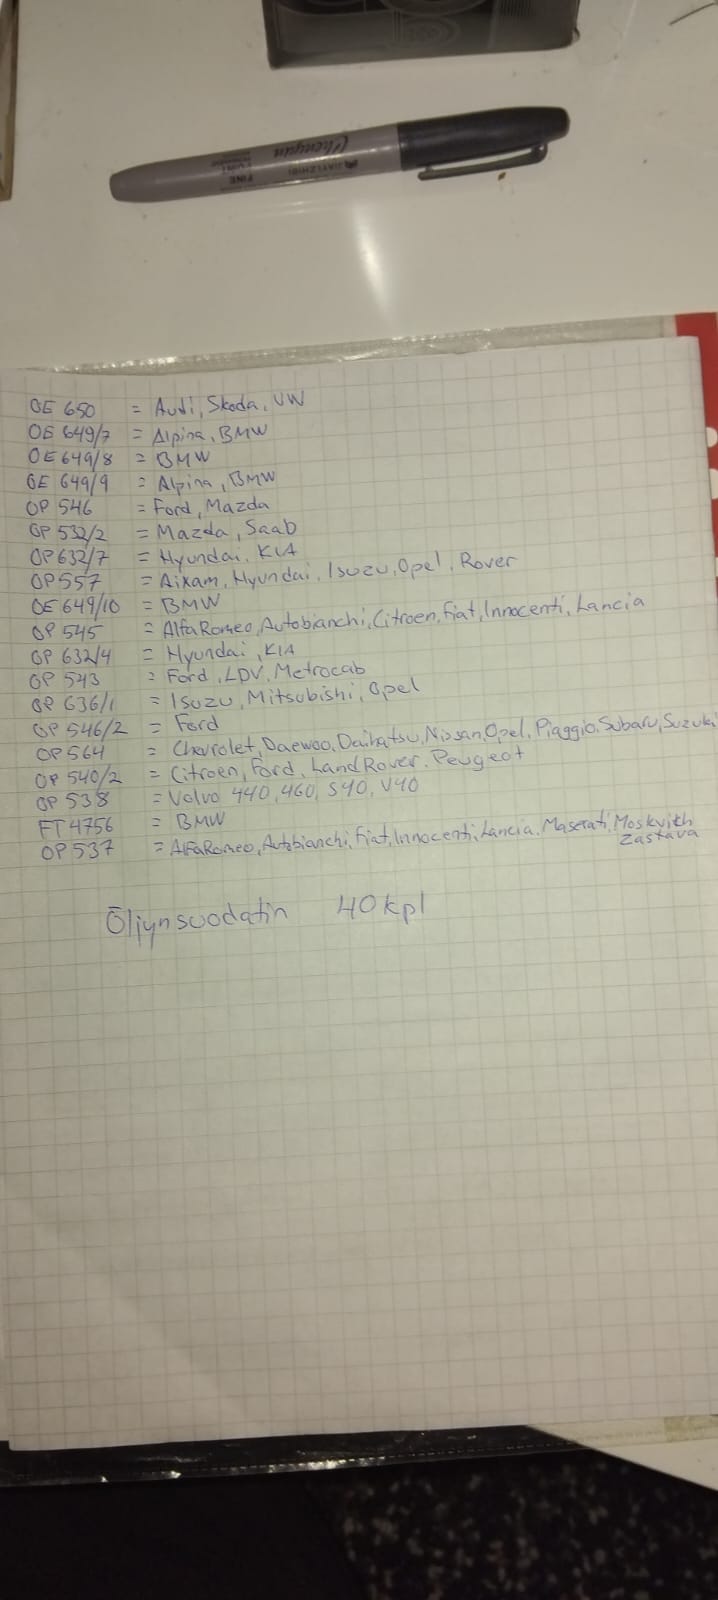 Chenyun
JIATEZHIBI
FINE
POINT
OE 650 = Audi, Skoda, VW
OE 649/7 = Alpina, BMW
OE 649/8 = BMW
OE 649/9 = Alpina, BMW
OP 546 = Ford, Mazda
OP 532/2 = Mazda, Saab
OP 632/7 = Hyundai, KIA
OP 557 = Aixam, Hyundai, Isuzu, Opel, Rover
OE 649/10 = BMW
OP 545 = Alfa Romeo, Autobianchi, Citroen, Fiat, Innocenti, Lancia
OP 632/4 = Hyundai, KIA
OP 543 = Ford, LDV, Metrocab
OP 636/1 = Isuzu, Mitsubishi, Opel
OP 546/2 = Ford
OP 564 = Chevrolet, Daewoo, Daihatsu, Nissan, Opel, Piaggio, Subaru, Suzuki
OP 540/2 = Citroen, Ford, Land Rover, Peugeot
OP 538 = Volvo 440, 460, S40, V40
FT 4756 = BMW
OP 537 = Alfa Romeo, Autobianchi, Fiat, Innocenti, Lancia, Maserati, Moskvith
Zastava
Öljynsuodatin 40 kpl